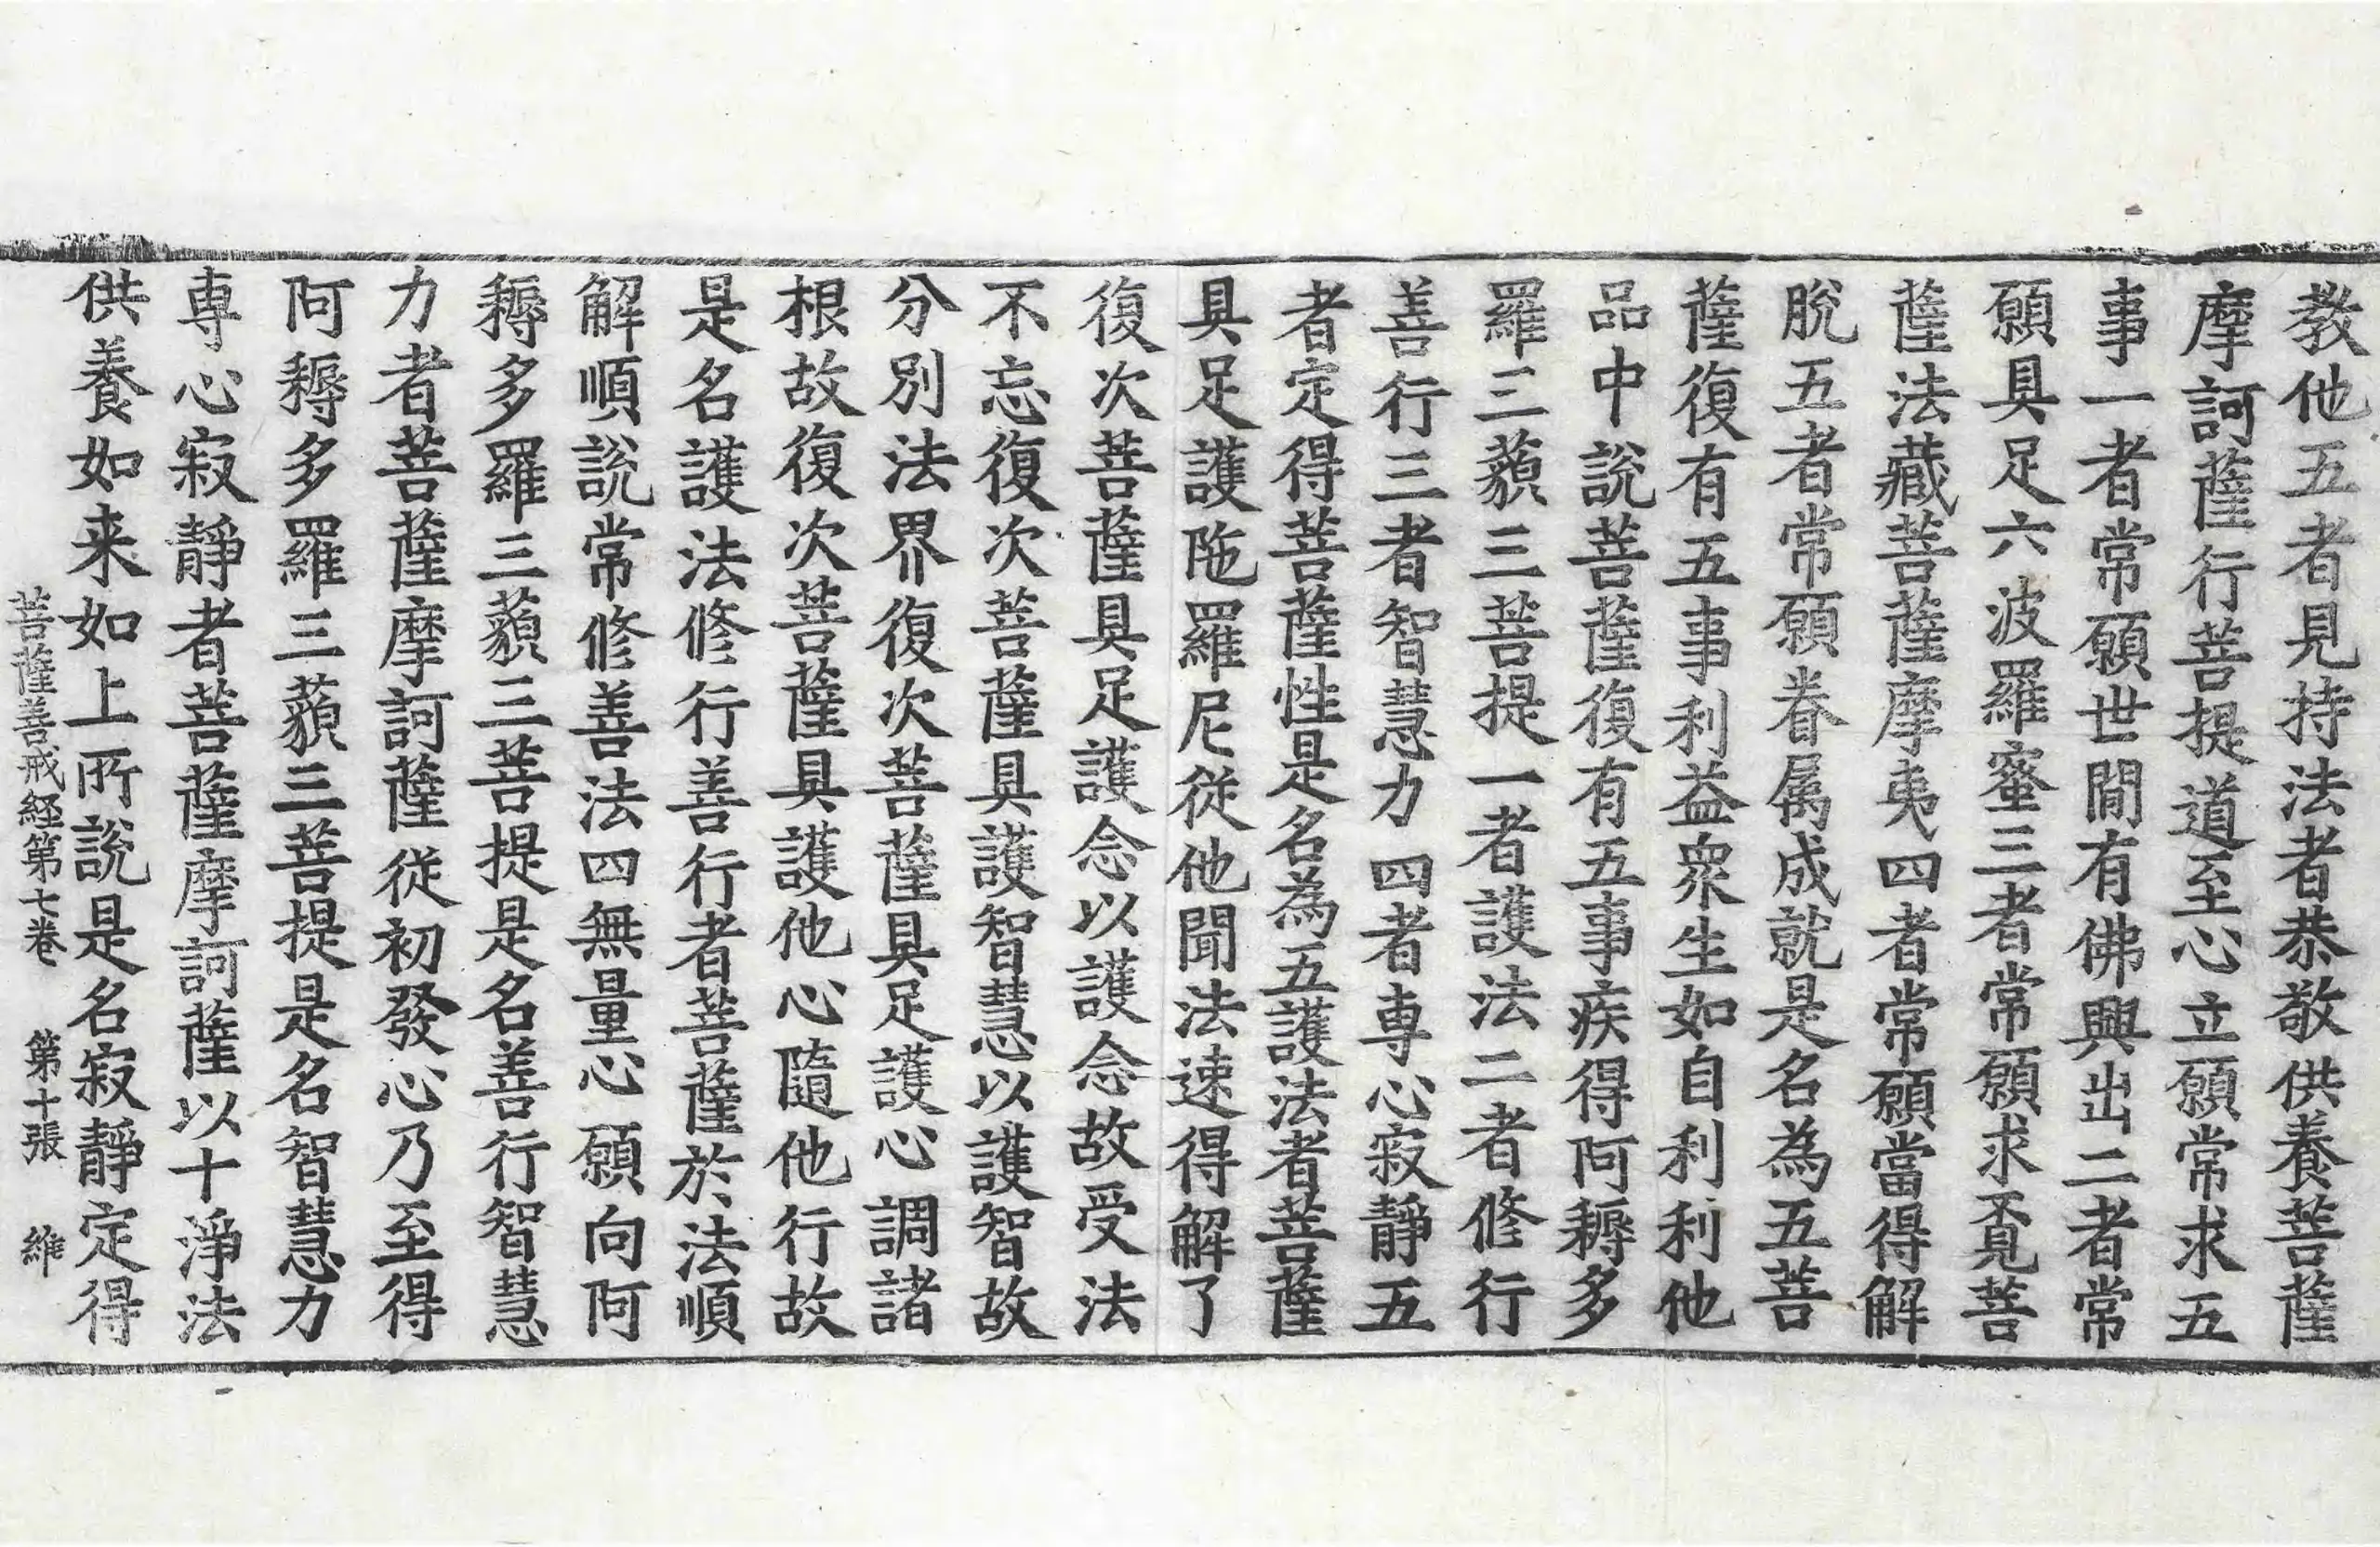 教他五者見持法者恭敬供養菩薩
摩訶薩行菩提道至心立願常求五
事一者常願世間有佛興出二者常
願具足六波羅蜜三者常願求覔菩
薩法藏菩薩摩夷四者常願當得解
脫五者常願眷属成就是名為五菩
薩復有五事利益衆生如自利利他
品中說菩薩復有五事疾得阿耨多
羅三藐三菩提一者護法二者修行
善行三者智慧力四者專心寂靜五
者定得菩薩性是名為五護法者菩薩
具足護陁羅尼從他聞法速得解了
復次菩薩具足護念以護念故受法
不忘復次菩薩具護智慧以護智故
分別法界復次菩薩具足護心調諸
根故復次菩薩具護他心隨他行故
是名護法修行善行者菩薩於法順
解順說常修善法四無量心願向阿
耨多羅三藐三菩提是名善行智慧
力者菩薩摩訶薩從初發心乃至得
阿耨多羅三藐三菩提是名智慧力
専心寂靜者菩薩摩訶薩以十淨法
供養如来如上所說是名寂靜定得
菩薩善戒経第七卷 第十張 維